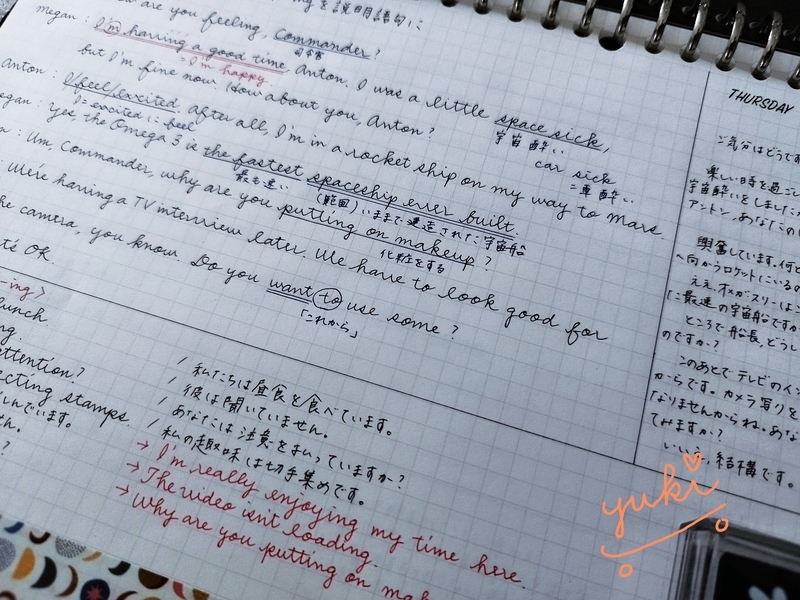 are you feeling, Commander?
司令官
megan : I'm having a good time, Anton. I was a little space sick,
= I'm happy
宇宙酔い
but I'm fine now. How about you, Anton?
car sick
= 車酔い
Anton : I feel excited after all, I'm in a rocket ship on my way to Mars.
I = excited に feel
Yes, the Omega 3 is the fastest spaceship ever built.
最も速い
(範囲) いままで建造された宇宙船
Um, Commander, why are you putting on makeup?
化粧をする
We're having a TV interview later. We have to look good for
the camera, you know. Do you want to use some?
「これから」
OK.
-ing>
lunch.
attention?
collecting stamps.
/ 私たちは昼食を食べています。
/ 彼は聞いていません。
/ あなたは注意をはらっていますか?
/ 私の趣味は切手集めです。
→ I'm really enjoying my time here.
→ The video isn't loading.
→ Why are you putting on
THURSDAY
ご気分はどうです
楽しい時を過ごし
宇宙酔いをしました
アントン、あなたの
興奮しています。何と
へ向かうロケットにいるの
ええ、オメガスリーは
最速の宇宙船ですか
ところで船長、どうし
のですか?
このあとでテレビのイン
からです。カメラ写りを
なりませんからね。あな
てみますか?
いいい、結構です。
yuki